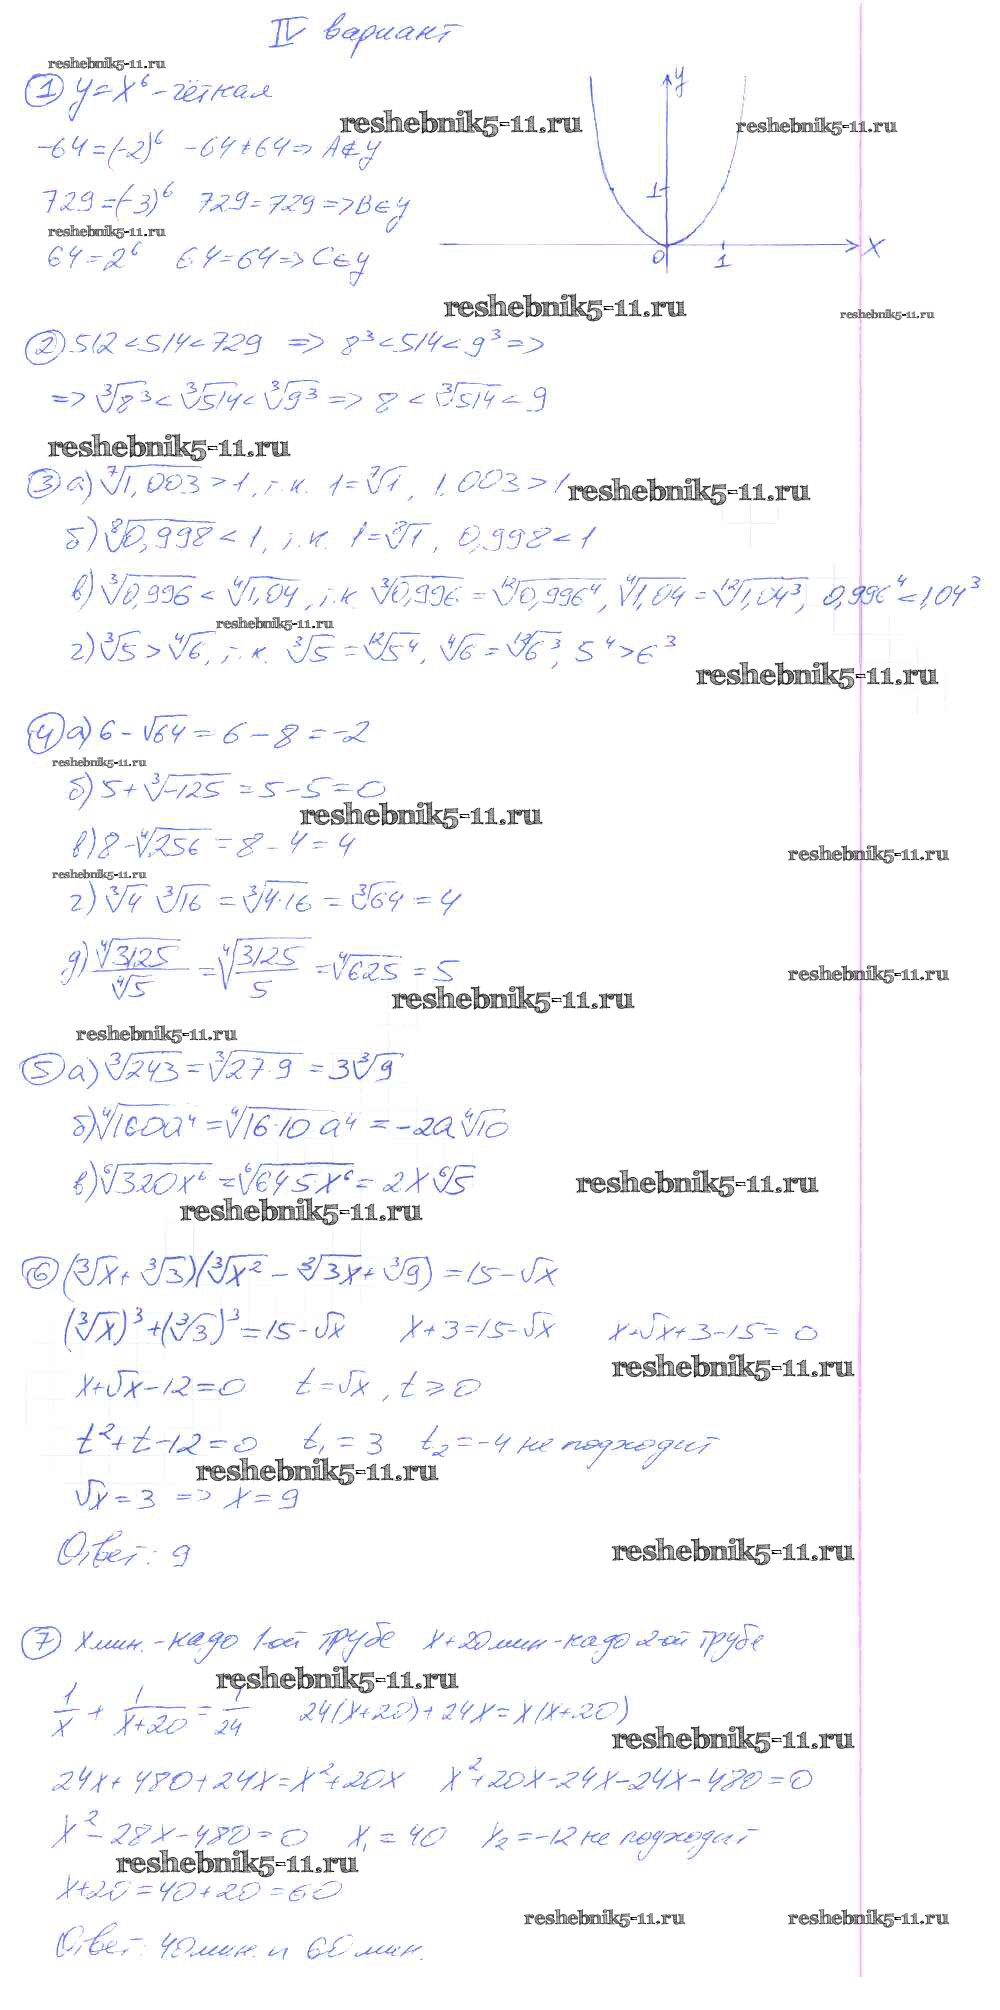 IV вариант
reshebnik5-11.ru
① y=x⁶ - чётная
reshebnik5-11.ru
reshebnik5-11.ru
y
-64=(-2)⁶ -64≠64=> A∉y
729=(-3)⁶ 729=729=>B∈y
1
reshebnik5-11.ru
64=2⁶ 64=64=>C∈y
0 1 x
reshebnik5-11.ru
reshebnik5-11.ru
② 512<514<729 => 8³<514<9³=>
=> ∛8³<∛514<∛9³ => 8<∛514<9
reshebnik5-11.ru
③ а) ⁷√1,003>1, т.к. 1=⁷√1, 1,003>1
reshebnik5-11.ru
б) ⁸√0,998<1, т.к. 1=⁸√1, 0,998<1
в) ∛0,996<∜1,04, т.к. ∛0,996=¹²√0,996⁴, ∜1,04=¹²√1,04³, 0,996⁴<1,04³
reshebnik5-11.ru
г) ∛5>∜6, т.к. ∛5=¹²√5⁴, ∜6=¹²√6³, 5⁴>6³
reshebnik5-11.ru
④ а) 6-√64=6-8=-2
reshebnik5-11.ru
б) 5+∛-125=5-5=0
reshebnik5-11.ru
в) 8-∜256=8-4=4
reshebnik5-11.ru
reshebnik5-11.ru
г) ∛4 ∛16=∛4·16=∛64=4
д) ∜3125/∜5=∜3125/5=∜625=5
reshebnik5-11.ru
reshebnik5-11.ru
reshebnik5-11.ru
⑤ а) ∛243=∛27·9=3∛9
б) ∜160a⁴=∜16·10a⁴=-2a∜10
в) ⁶√320x⁶=⁶√64·5x⁶=2x⁶√5
reshebnik5-11.ru
reshebnik5-11.ru
⑥ (∛x+∛3)(∛x²-∛3x+∛9)=15-√x
(∛x)³+(∛3)³=15-√x x+3=15-√x x+√x+3-15=0
reshebnik5-11.ru
x+√x-12=0 t=√x, t≥0
t²+t-12=0 t₁=3 t₂=-4 не подходит
reshebnik5-11.ru
√x=3 => x=9
Ответ: 9
reshebnik5-11.ru
⑦ x мин. - надо 1-ой трубе x+20 мин - надо 2-ой трубе
reshebnik5-11.ru
1/x+1/(x+20)=1/24 24(x+20)+24x=x(x+20)
reshebnik5-11.ru
24x+480+24x=x²+20x x²+20x-24x-24x-480=0
x²-28x-480=0 x₁=40 x₂=-12 не подходит
reshebnik5-11.ru
x+20=40+20=60
reshebnik5-11.ru
reshebnik5-11.ru
Ответ: 40 мин. и 60 мин.